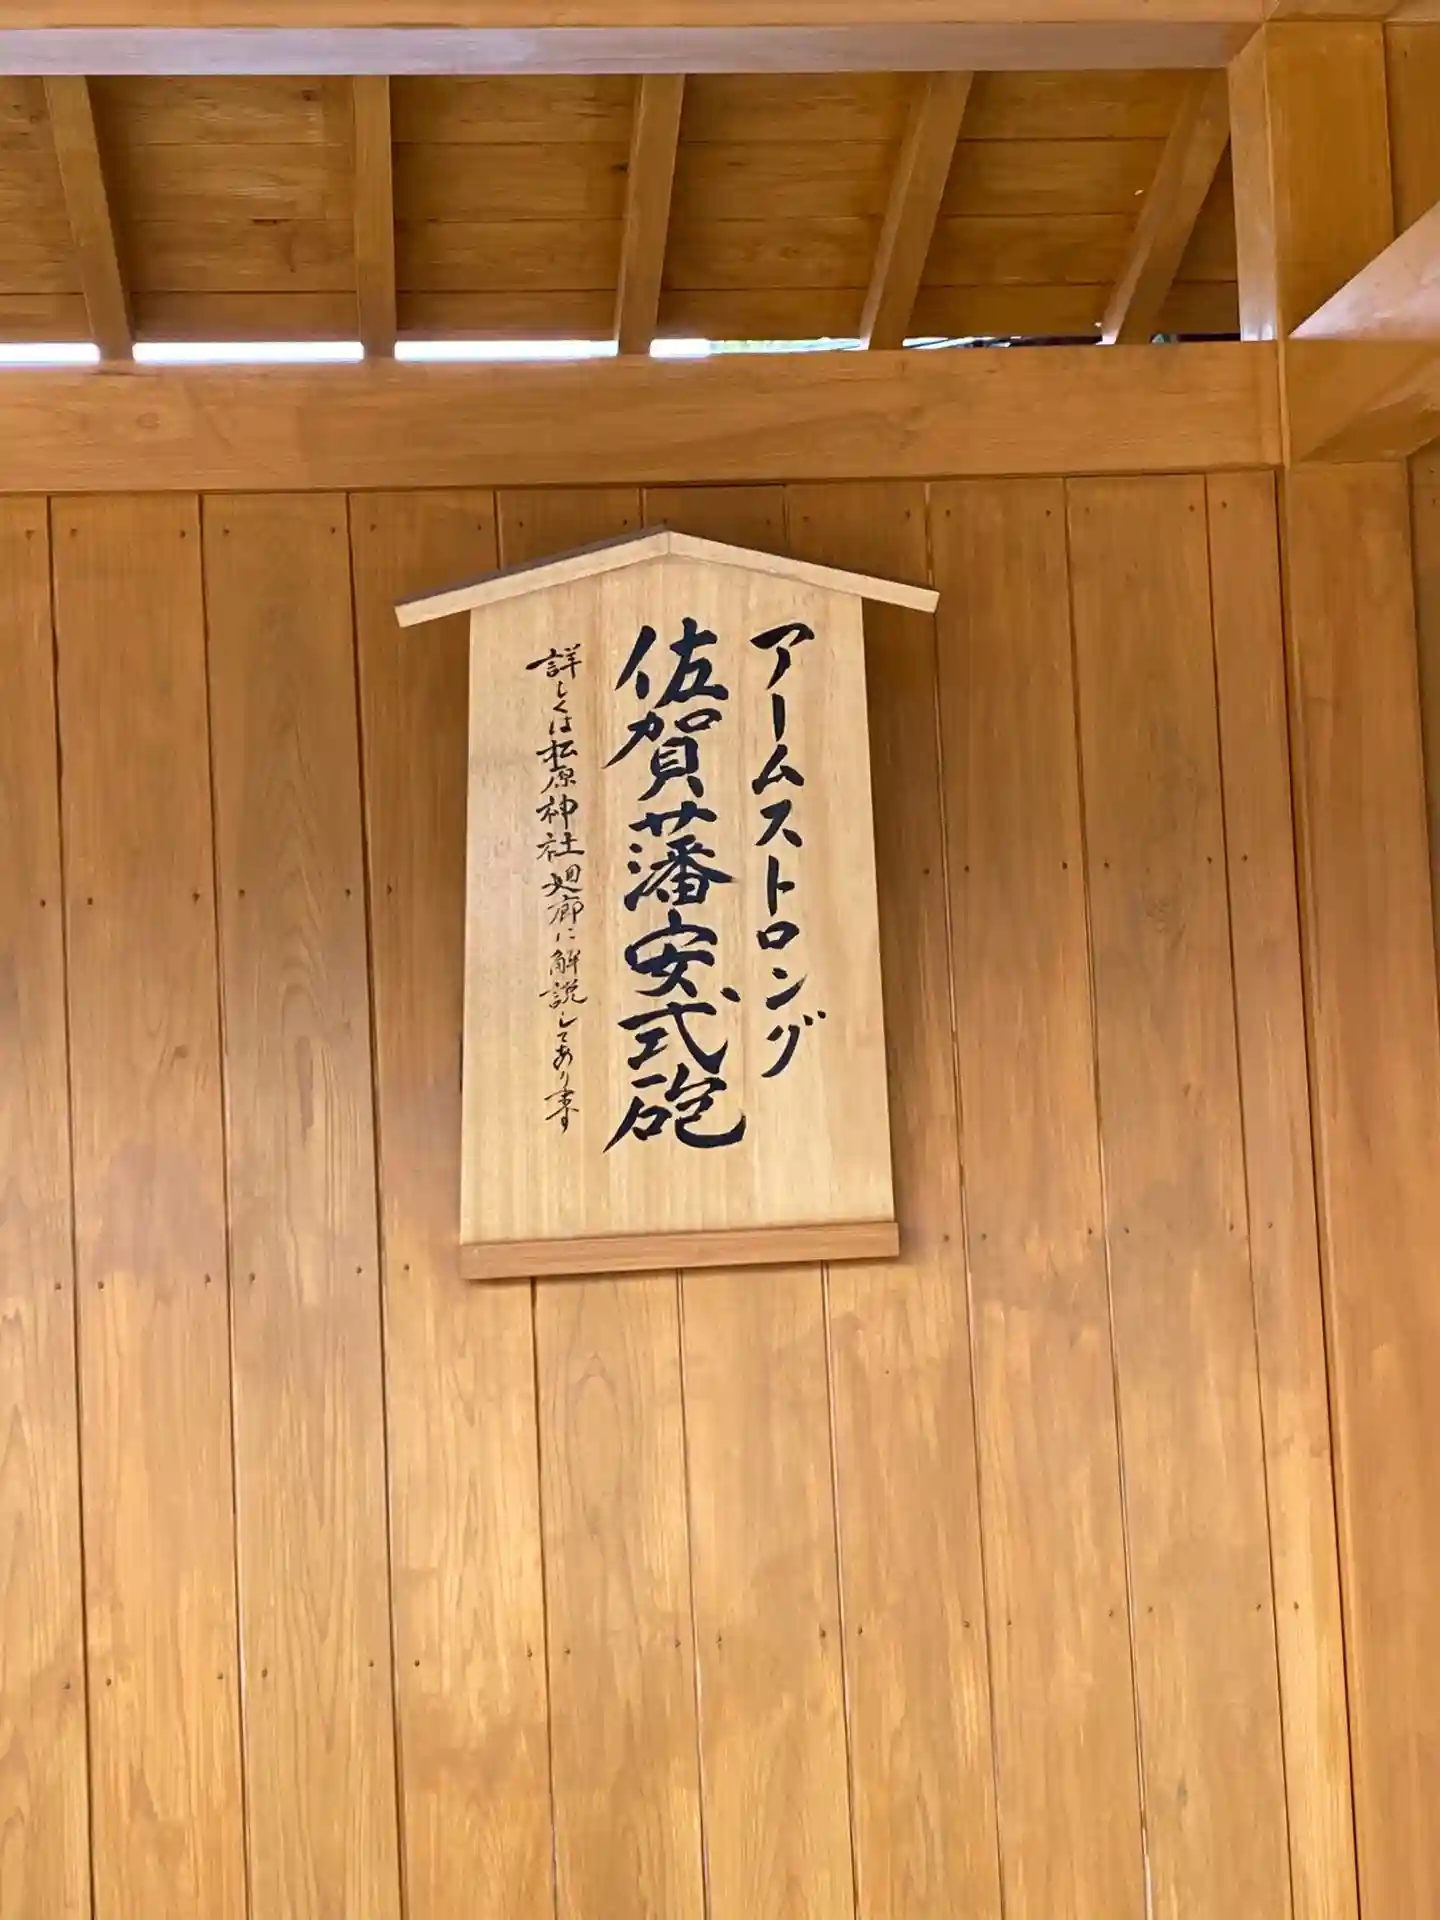 アームストロング
佐賀藩安式砲
詳しくは松原神社廻廊に解説してあります